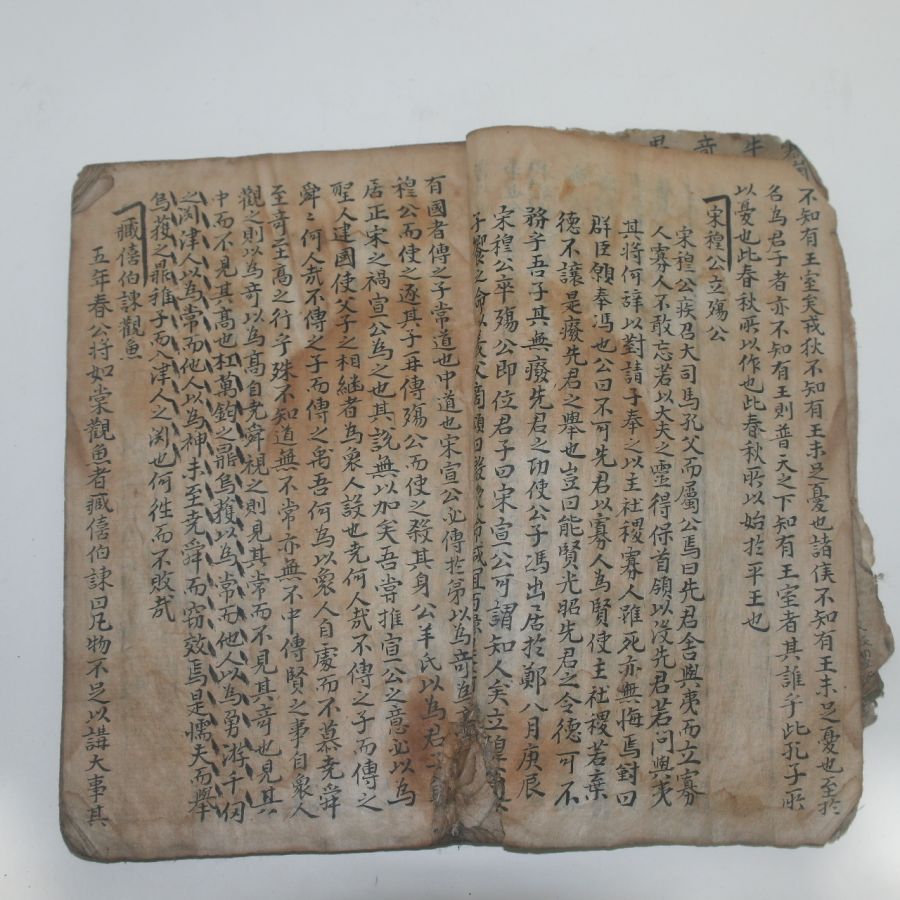 不知有王室矣戎狄不知有王未足憂也諸侯不知有王未足憂也至於
名爲君子者亦不知有王則普天之下知有王室者其誰乎此孔子所
以憂也此春秋所以作也此春秋所以始於平王也
宋穆公立殤公
宋穆公疾召大司馬孔父而屬公焉曰先君舍與夷而立寡
人寡人不敢忘若以大夫之靈得保首領以没先君若問與夷
其將何辞以對請子奉之以主社稷寡人雖死亦無悔焉對曰
群臣願奉馮也公曰不可先君以寡人爲賢使主社稷若棄
德不讓是廢先君之舉也豈曰能賢光昭先君之令德可不
務乎吾子其無廢先君之功使公子馮出居於鄭八月庚辰
宋穆公卒殤公即位君子曰宋宣公可謂知人矣立穆
子饗之命以義夫商頌曰殷受命咸
有國者傳之子常道也中道也宋宣公必傳於第以爲竒爲高
穆公而使之逐其子再傳殤公而使之殺其身公羊氏以爲君子
居正宋之禍宣公爲之也其說無以加矣吾嘗推宣公之意必以爲
聖人建國使父子之相継者爲衆人設也尭何人㢤不傳之子而傳之
舜舜何人㢤不傳之子而傳之禹吾何爲以衆人自處而不慕尭舜
至竒至高之行乎殊不知道無不常亦無不中傳賢之事自衆人
觀之則以爲竒以爲高自尭舜視之則見其常而不見其竒也見其
中而不見其高也扛萬鈞之鼎烏獲以爲常而他人以爲勇游千仞
之渕津人以爲常而他人以爲神未至尭舜而窃效焉是懦夫而舉
烏獲之鼎稚子而入津人之渕也何徃而不敗㢤
臧僖伯諌觀魚
五年春公將如棠觀魚者臧僖伯諌曰凡物不足以講大事其